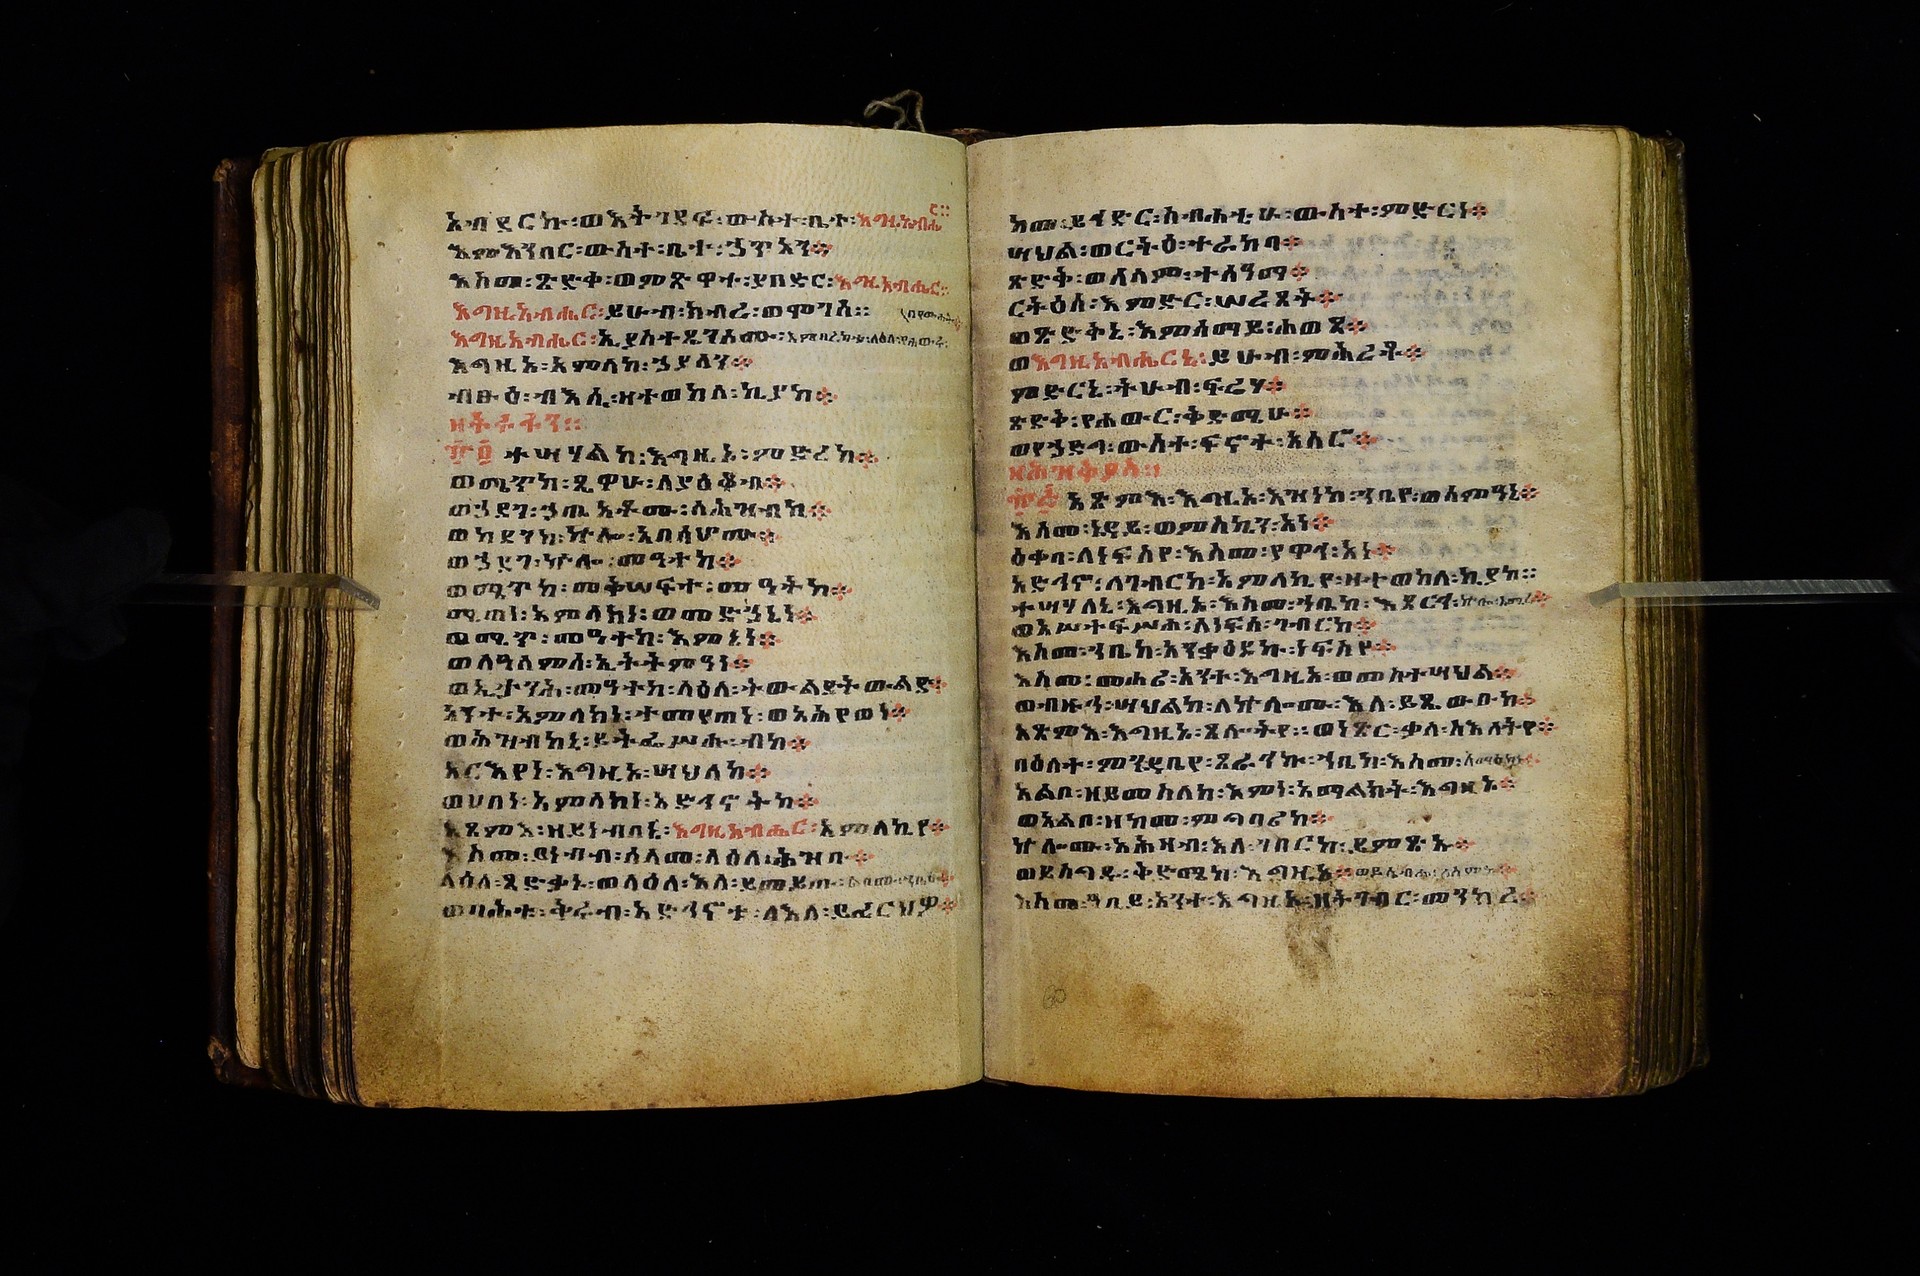 አብደርኩ፡ወእትገደፍ፡ውስተ፡ቤተ፡እግዚአብሔር፡፡
እምእንበር፡ውስተ፡ቤተ፡ኃጥአን፨
እስመ፡ጽድቀ፡ወምጽዋተ፡ያበድር፡እግዚአብሔር፡፡
እግዚአብሔር፡ይሁብ፡ክብረ፡ወሞገሰ፡፡
እግዚአብሔር፡ኢያስተጼንሶሙ፡እምበረከቱ፡ለእለ፡የሐውሩ፡በየውሃት፨
እግዚኦ፡አምላከ፡ኃያላን፨
ብፁዕ፡ብእሲ፡ዘተወከለ፡ኪያከ፨
፹፬ ተሣሃልከ፡እግዚኦ፡ምድረከ፨
ወሜጥከ፡ጺዋሁ፡ለያዕቆብ፨
ወኃደገ፡ኃጢአቶሙ፡ለሕዝብከ፨
ወከደንከ፡ኵሎ፡አበሳሆሙ፨
ወኃደገ፡ኵሎ፡መዓተከ፨
ወሜጥከ፡መቅሠፍተ፡መዓትከ፨
ሚጠነ፡አምላክነ፡ወመድኃኒነ፨
ወሚጥ፡መዓተከ፡እምኔነ፨
ወለዓለምሰ፡ኢትትምዓዓነ፨
ወኢታንኅ፡መዓተከ፡ላዕለ፡ትውልደት ውልድ፨
አንተ፡አምላክነ፡ተመየጠነ፡ወአሕየወነ፨
ወሕዝብከኒ፡ይትፌሥሑ፡ብከ፨
አርእየነ፡እግዚኦ፡ሣህለከ፨
ወሀበነ፡አምላክነ፡አድኅኖትከ፨
አጸምእ፡ዘይነብበኒ፡እግዚአብሔር፡አምላኪየ፨
እስመ፡ይነብብ፡ሰላመ፡ላዕለ፡ሕዝቡ፨
ላዕለ፡ጻድቃኑ፡ወላዕለ፡እለ፡ይመይጡ፡ልቦሙ፡ኀቤሁ፨
ወባሕቱ፡ቅሩብ፡አድኅኖቱ፡ለእለ፡ይፈርህዎ፨
ከመ፡ይኅድር፡ስብሐቲሁ፡ውስተ፡ምድርነ፨
ሣህል፡ወርትዕ፡ተራከባ፨
ጽድቅ፡ወሰላም፡ተሰዓማ፨
ርትዕሰ፡እምድር፡ሠረጸት፨
ወጽድቅኒ፡እምሰማይ፡ሐወጸ፨
ወእግዚአብሔርኒ፡ይሁብ፡ምሕረቶ፨
ምድርኒ፡ትሁብ፡ፍሬሃ፨
ጽድቅ፡የሐውር፡ቅድሜሁ፨
ወየኃድግ፡ውስተ፡ፍኖተ፡አሰሮ፨
ዘሕዝቅያስ፡፡
፹፭ አጽምእ፡እግዚኦ፡እዝነከ፡ኀቤየ፡ወስምዓኒ፨
እስመ፡ነዳይ፡ወምስኪን፡አነ፨
ዕቀባ፡ለነፍስየ፡እስመ፡የዋህ፡አነ፨
አድኅኖ፡ለገብርከ፡አምላኪየ፡ዘተወከለ፡ኪያከ፡፡
ተሣሃለኒ፡እግዚኦ፡እስመ፡ኀቤከ፡እጸርኅ፡ኵሎ፡አሚረ፨
ወአሥተፍሥሐ፡ለነፍሰ፡ገብርከ፨
እስመ፡ኀቤከ፡አንቃዕደኩ፡ነፍስየ፨
እስመ፡መሐሪ፡አንተ፡እግዚኦ፡ወመስተሣህል፨
ወብዙኅ፡ሣህልከ፡ለኵሎሙ፡እለ፡ይጼውዑከ፨
አጽምእ፡እግዚኦ፡ጸሎትየ፡፡ወነጽር፡ቃለ፡አእለትየ፨
በዕለተ፡ምንዳቤየ፡ጸራኅኩ፡ኀቤከ፡እስመ፡ሰማዕከኒ፨
አልቦ፡ዘይመስለከ፡እምነ፡አማልክት፡እግዚኦ፨
ወአልቦ፡ዘከመ፡ምግባሪከ፨
ኵሎሙ፡አሕዛብ፡እለ፡ገበርከ፡ይምጽኡ፨
ወይስግዱ፡ቅድሜከ፡እግዚኦ፨ወይሴብሑ፡ለስምከ፨
እስመ፡ዓቢይ፡አንተ፡እግዚኦ፡ዘትገብር፡መንክረ፨
60